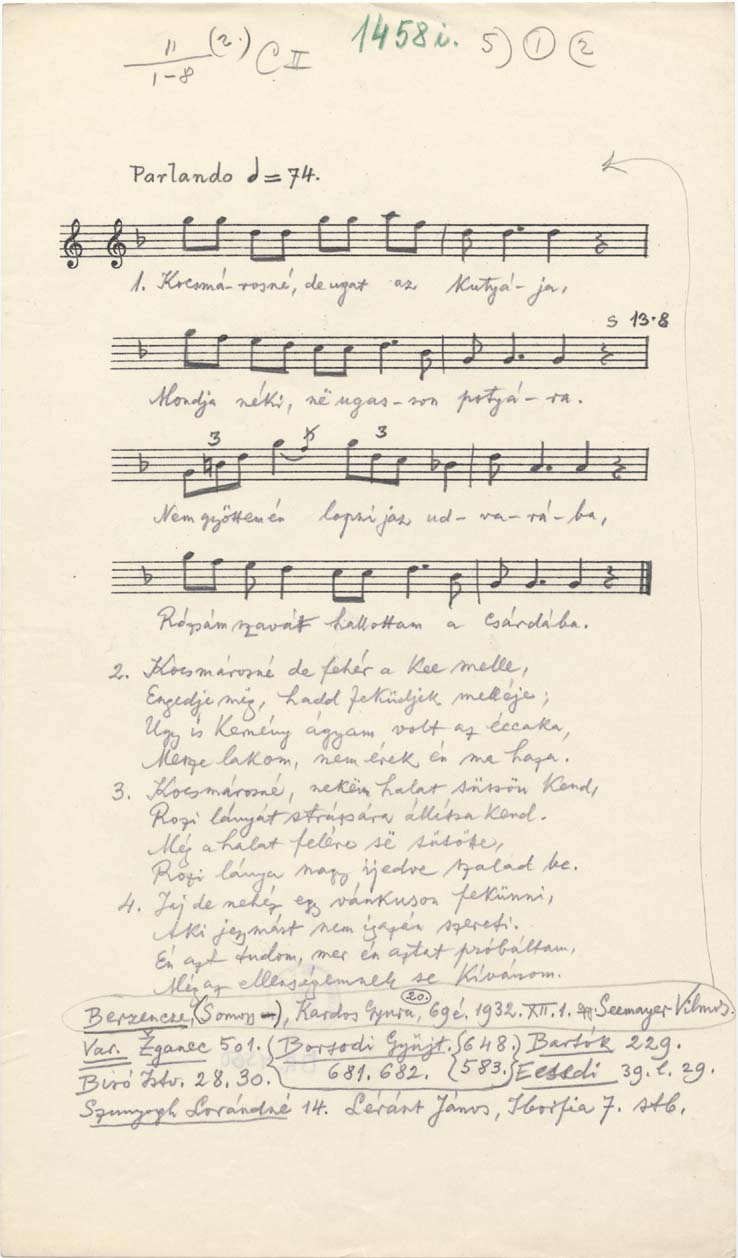 II (2.) C II 1458 i. 5) 1 2
1-8
Parlando = 74.
1. Kocsmá-rosné, de ugat az kutyá-ja,
S 13·8
Mondja néki, në ugas-son potyá-ra.
3 3
Nem gyöttem én lopni jaz ud-va-rá-ba,
Rózsám szavát hallottam a csárdába.
2. Kocsmárosné de fehér a kee melle,
Engedje még, hadd feküdjek melléje;
Ugy is kemény ágyam volt az éccaka,
Messze lakom, nem érek én ma haza.
3. Kocsmárosné, nekëm halat süssön kend,
Rozi lányát strázsára állítsa kend.
Még a halat felére së sütötte,
Rozi lánya nagy ijedve szalad be.
4. Jaj de nehéz egy vánkuson fekünni,
Aki jegymást nem igazán szereti.
Én azt tudom, mer én aztat próbáltam,
Még az ellenségemnek se kívánom.
Berzencze, (Somogy-), Kardos Gyura, 69 é. 1932. XII. 1. Seemayer Vilmos.
20.
Var. Žganec 501. Borsodi Gyűjt. 648. Bartók 229.
Biró Istv. 28. 30. 681. 682. 583. Ecsedi 39. l. 29.
Szunyogh Lorándné 14. Léránt János, Iborfia 7. stb.